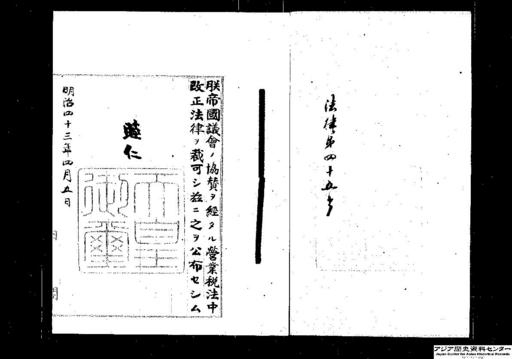 法律第四十五号
朕帝國議會ノ協賛ヲ經タル營業税法中
改正法律ヲ裁可シ茲ニ之ヲ公布セシム
睦仁
天皇御璽
明治四十三年四月五日
内閣
アジア歴史資料センター
Japan Center for Asian Historical Records